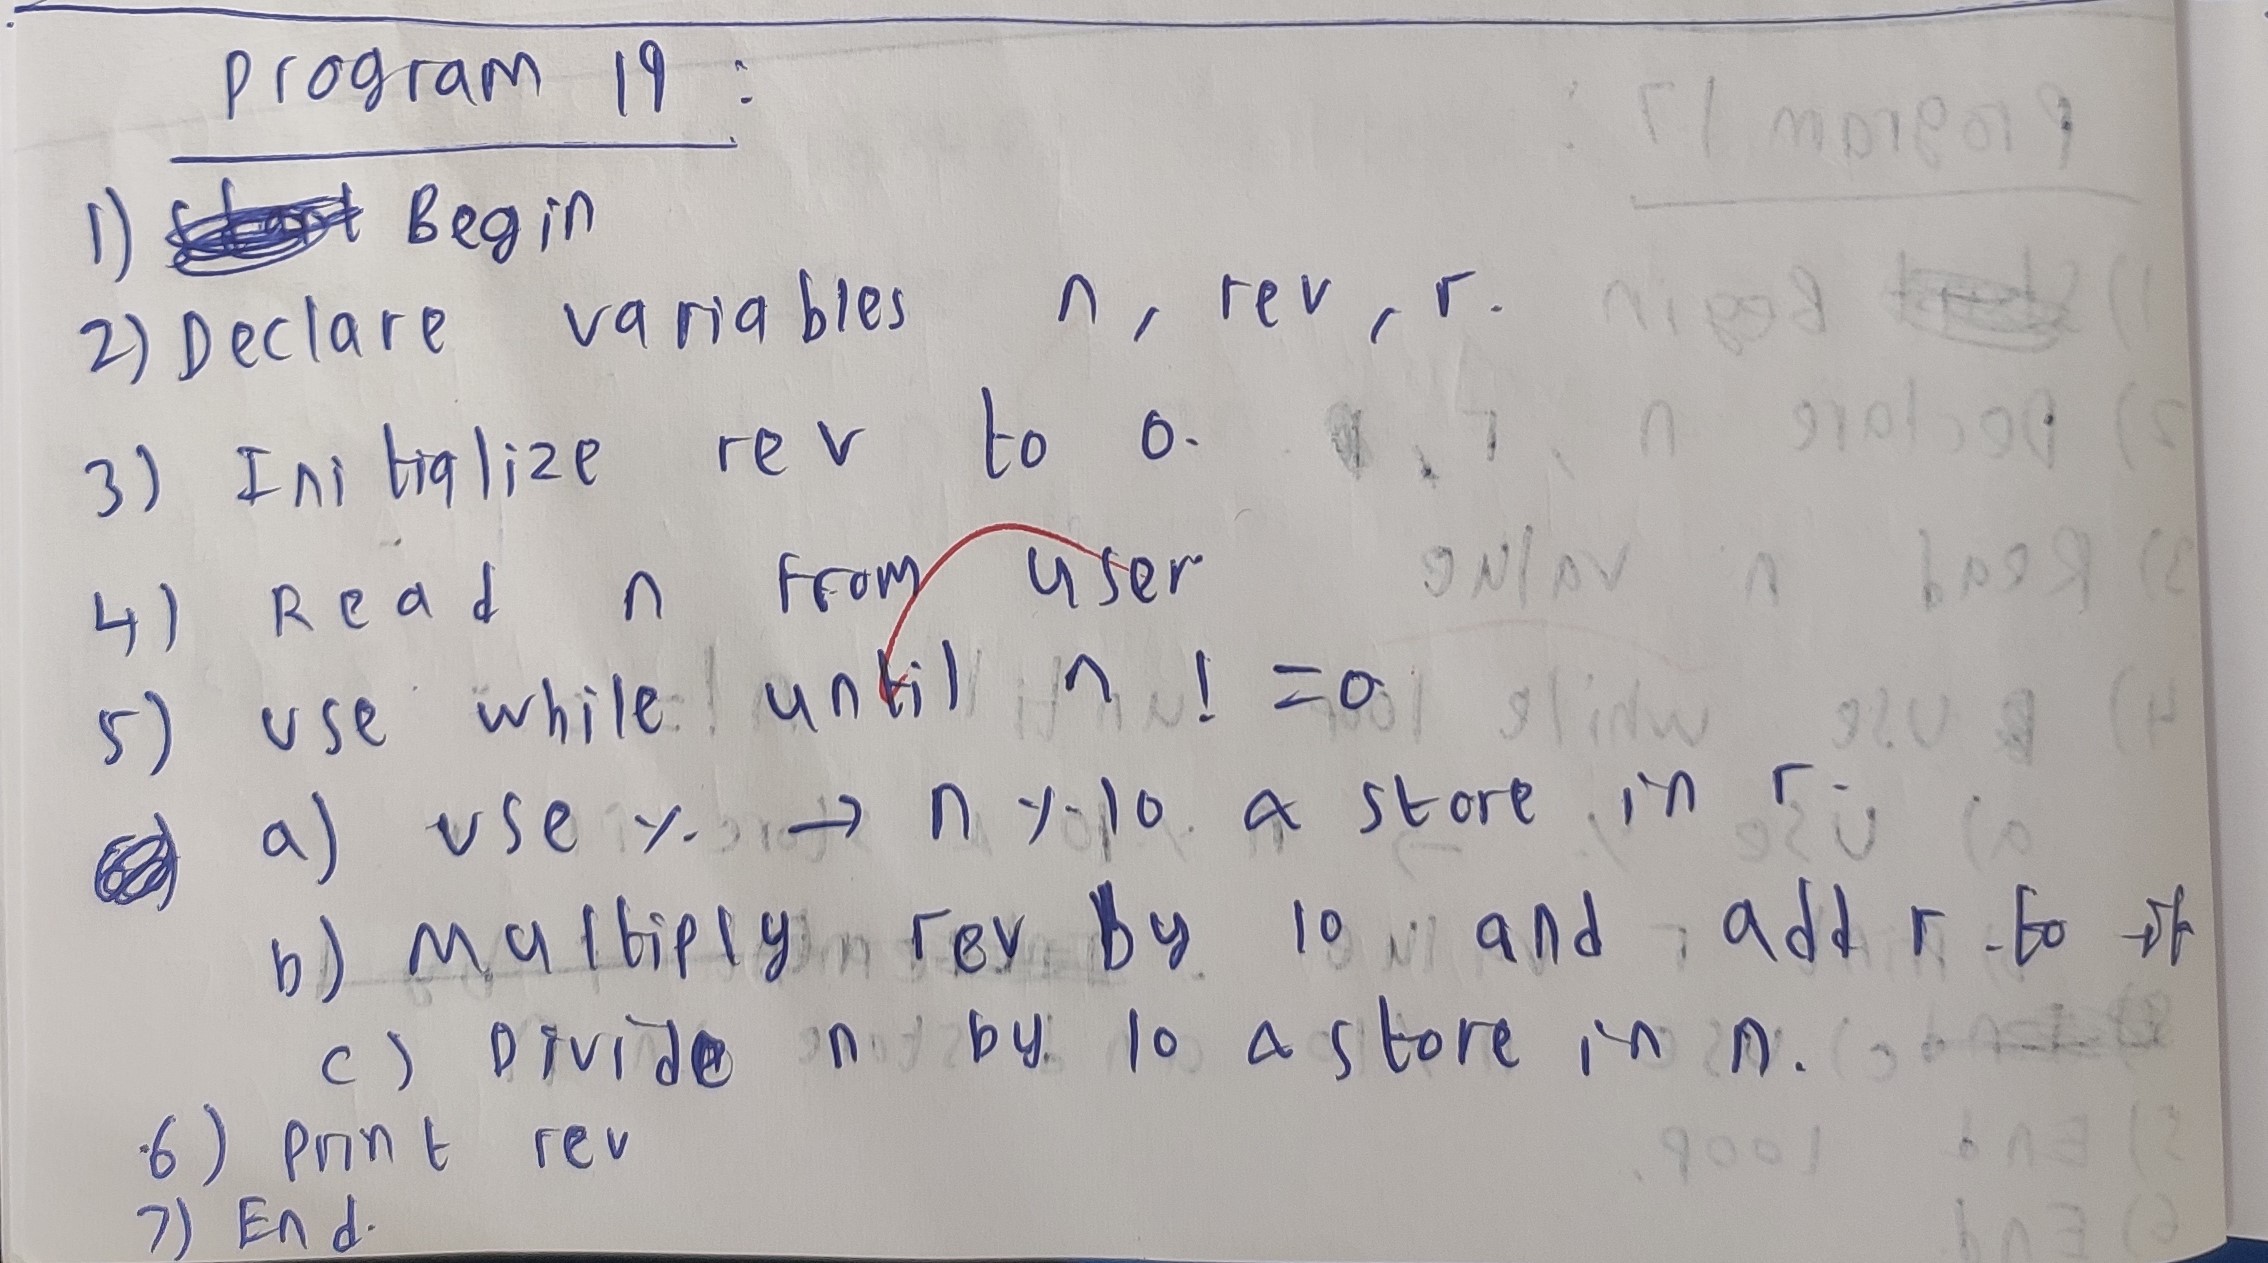 Program 19 :
1) Begin
2) Declare variables n, rev, r.
3) Initialize rev to 0.
4) Read n from user
5) use while until n != 0
a) use % → n % 10 & store in r.
b) Multiply rev by 10 and add r to it
c) Divide n by 10 & store in n.
6) print rev
7) End.